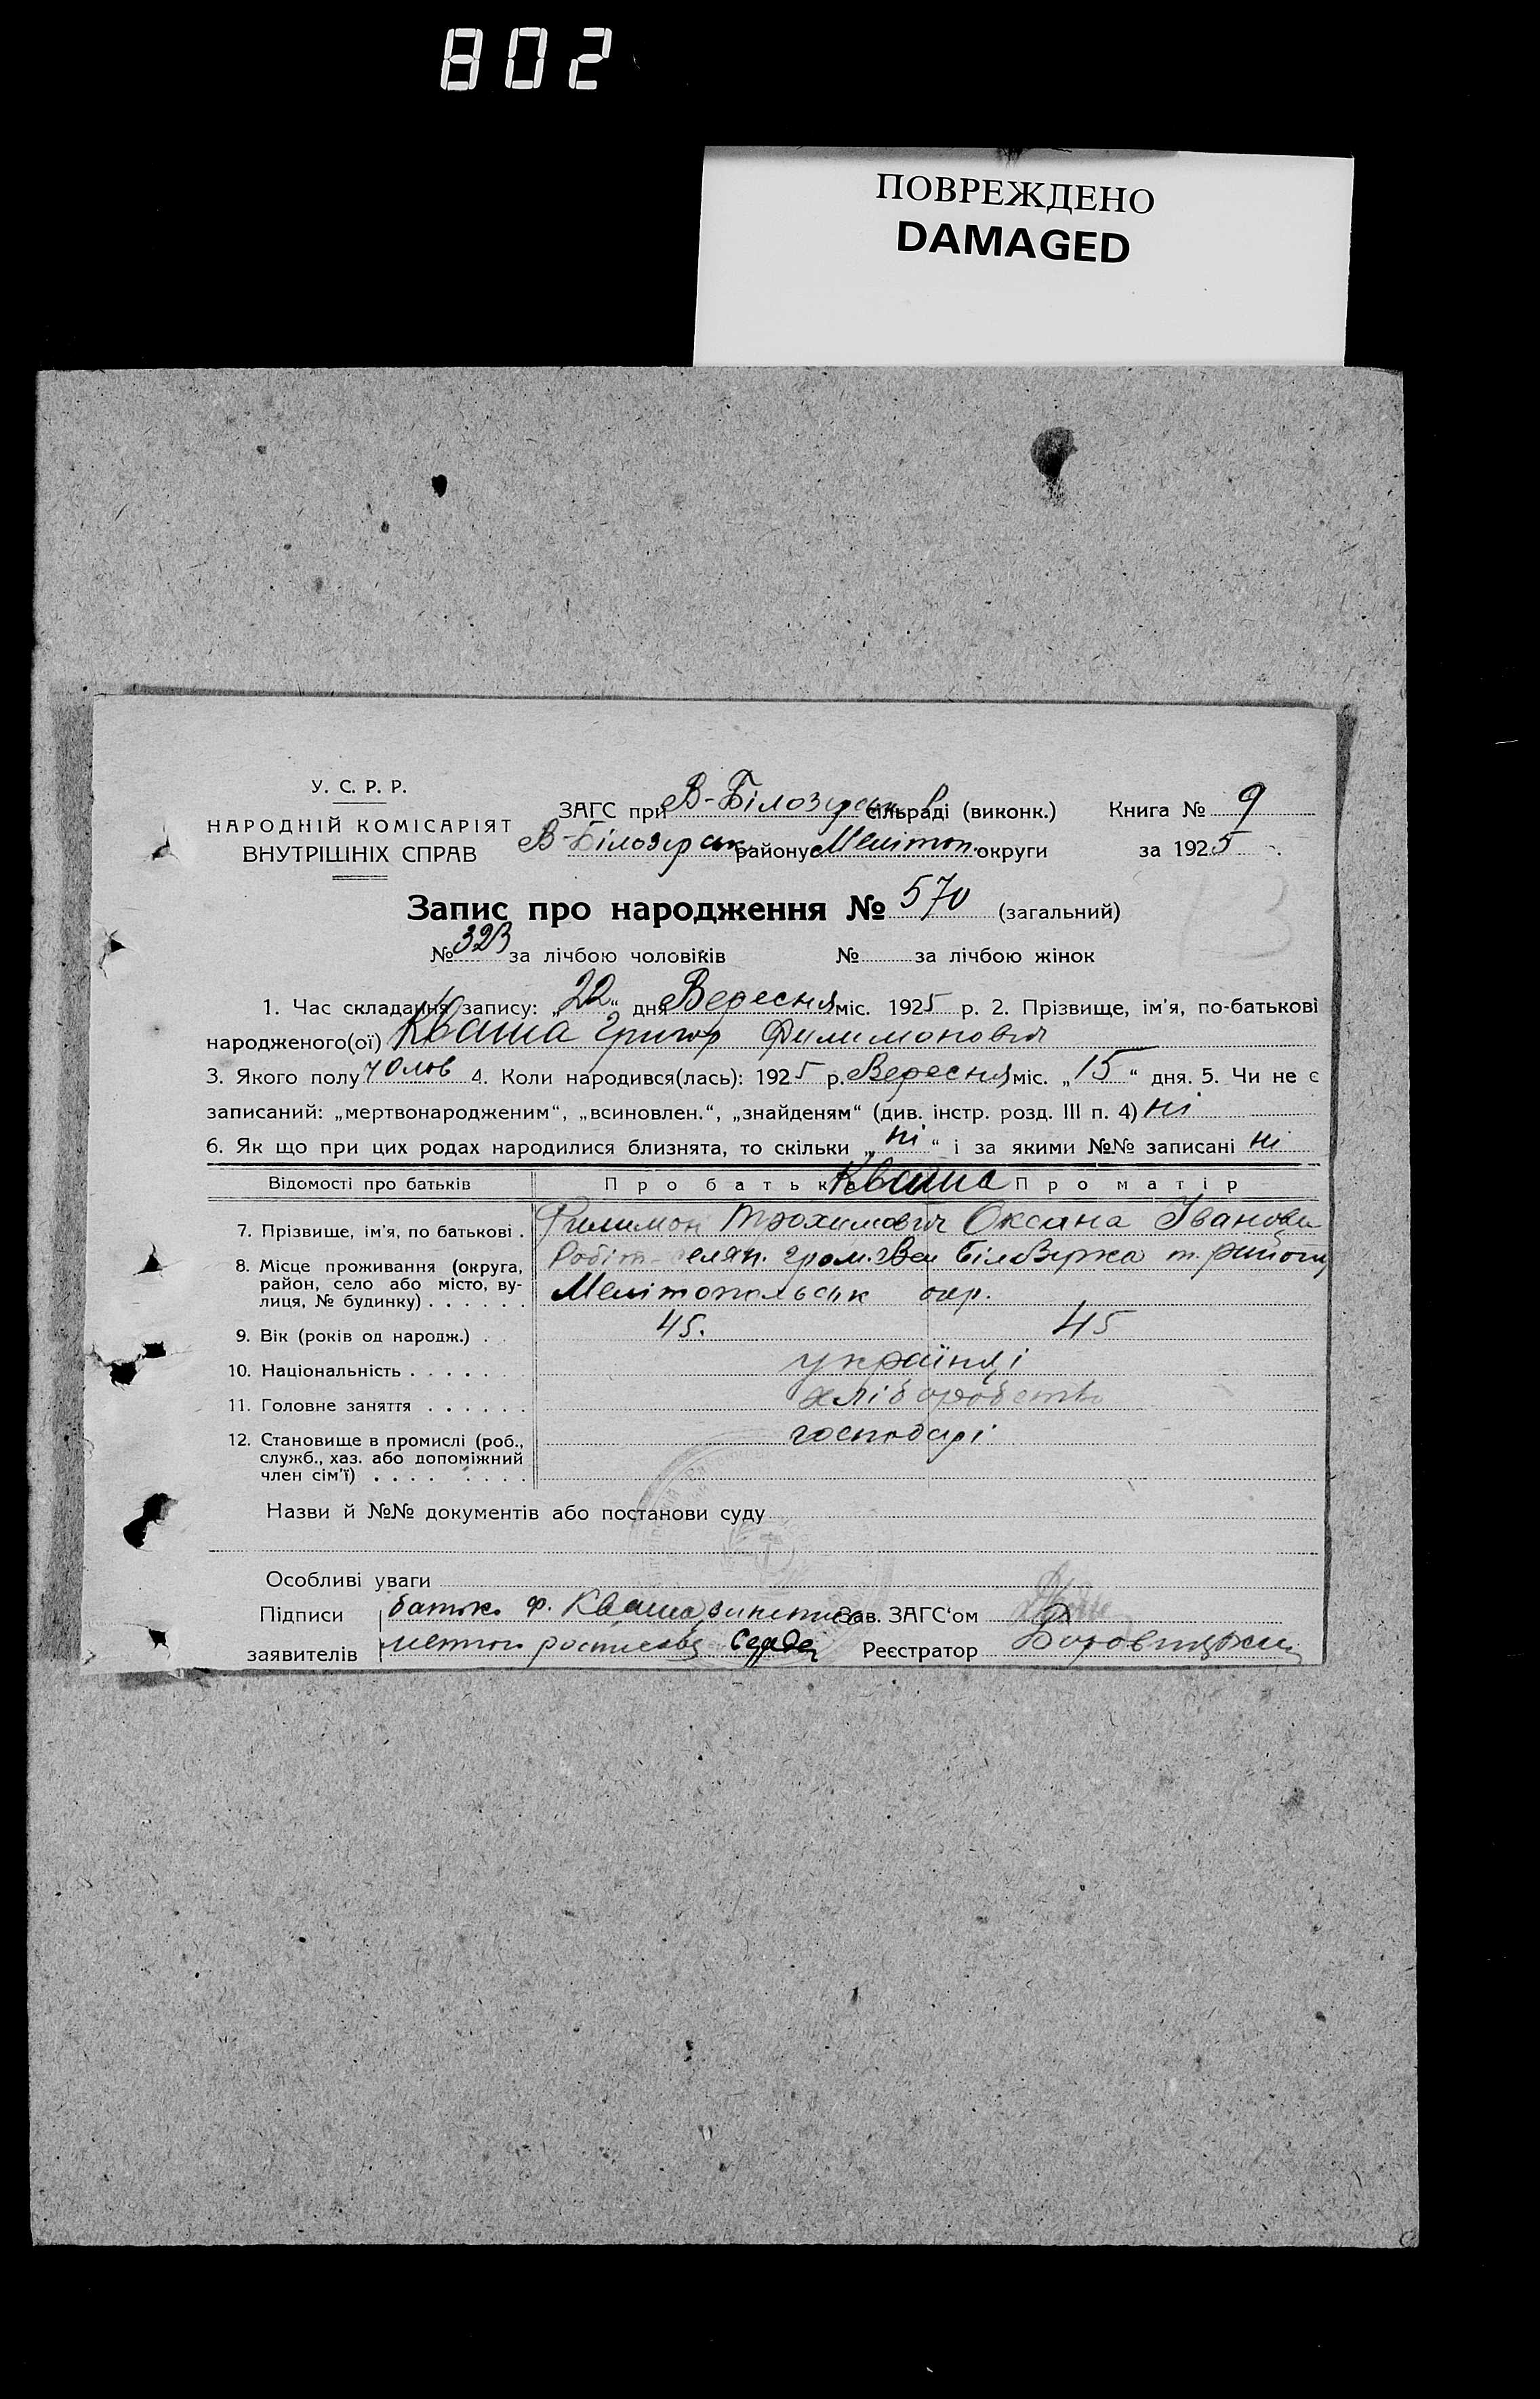 802
ПОВРЕЖДЕНО
DAMAGED
У. С. Р. Р.
НАРОДНІЙ КОМІСАРІЯТ
ВНУТРІШНІХ СПРАВ
ЗАГС при В-Білозирськ сільраді (виконк.) Книга № 9
В-Білозирськ району Мелітоп. округи за 1925
Запис про народження № 570 (загальний)
№ 323 за лічбою чоловіків № за лічбою жінок
1. Час складання запису: „22“ дня Вересня міс. 1925 р. 2. Прізвище, ім'я, по-батькові
народженого(ої) Кваша Григор Филимонович
3. Якого полу чолов 4. Коли народився(лась): 1925 р. Вересня міс. „15“ дня. 5. Чи не є
записаний: „мертвонародженим“, „всиновлен.“, „знайденям“ (див. інстр. розд. III п. 4) ні
6. Як що при цих родах народилися близнята, то скільки „ні“ і за якими №№ записані ні
Відомості про батьків Про батька Кваша Про матір
7. Прізвище, ім'я, по батькові . Филимон Трохимович Оксана Іванова
8. Місце проживання (округа, район, село або місто, вулиця, № будинку) . . . . . . Робіт-селян. гром. Вел Білозирка т. району
Мелітопольськ окр.
9. Вік (років од народж.) . 45. 45
10. Національність . . . . . українці
11. Головне заняття . . . . . . хліборобство
12. Становище в промислі (роб., господарі
служб., хаз. або допоміжний
член сім'ї) . . . . . . . .
Назви й №№ документів або постанови суду
Особливі уваги
Підписи батько Ф. Кваша Зав. ЗАГС'ом
заявителів Реєстратор